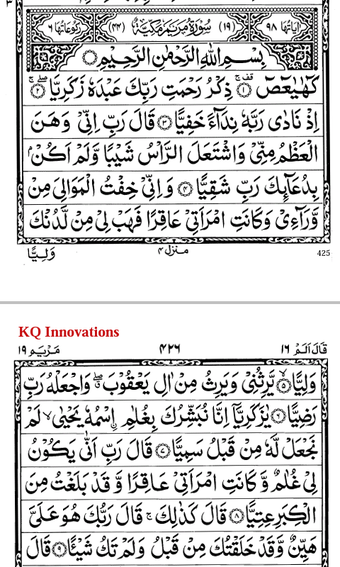 اٰیاتها ٩٨ (١٩) سُوْرَةُ مَرْيَمَ مَكِّيَّةٌ (٤٤) ركوعاتها ٦
بِسْمِ اللّٰهِ الرَّحْمٰنِ الرَّحِيْمِ
كٓهٰيٰعٓصٓ ۝١ ذِكْرُ رَحْمَتِ رَبِّكَ عَبْدَهٗ زَكَرِيَّا ۝٢
اِذْ نَادٰى رَبَّهٗ نِدَآءً خَفِيًّا ۝٣ قَالَ رَبِّ اِنِّىْ وَهَنَ
الْعَظْمُ مِنِّىْ وَاشْتَعَلَ الرَّاْسُ شَيْبًا وَّلَمْ اَكُنْۢ
بِدُعَآىِٕكَ رَبِّ شَقِيًّا ۝٤ وَاِنِّىْ خِفْتُ الْمَوَالِىَ مِنْ
وَّرَآءِىْ وَكَانَتِ امْرَاَتِىْ عَاقِرًا فَهَبْ لِىْ مِنْ لَّدُنْكَ
وَلِيًّا منزل ٤ 425
KQ Innovations
قَالَ اَلَمْ ١٦ ٤٢٦ مَرْيَم ١٩
وَلِيًّا ۝٥ يَّرِثُنِىْ وَيَرِثُ مِنْ اٰلِ يَعْقُوْبَ وَاجْعَلْهُ رَبِّ
رَضِيًّا ۝٦ يٰزَكَرِيَّآ اِنَّا نُبَشِّرُكَ بِغُلٰمِ اۨسْمُهٗ يَحْيٰى ۙ لَمْ
نَجْعَلْ لَّهٗ مِنْ قَبْلُ سَمِيًّا ۝٧ قَالَ رَبِّ اَنّٰى يَكُوْنُ
لِىْ غُلٰمٌ وَّكَانَتِ امْرَاَتِىْ عَاقِرًا وَّقَدْ بَلَغْتُ مِنَ
الْكِبَرِ عِتِيًّا ۝٨ قَالَ كَذٰلِكَ ۚ قَالَ رَبُّكَ هُوَ عَلَىَّ
هَيِّنٌ وَّقَدْ خَلَقْتُكَ مِنْ قَبْلُ وَلَمْ تَكُ شَيْـًٔا ۝٩ قَالَ